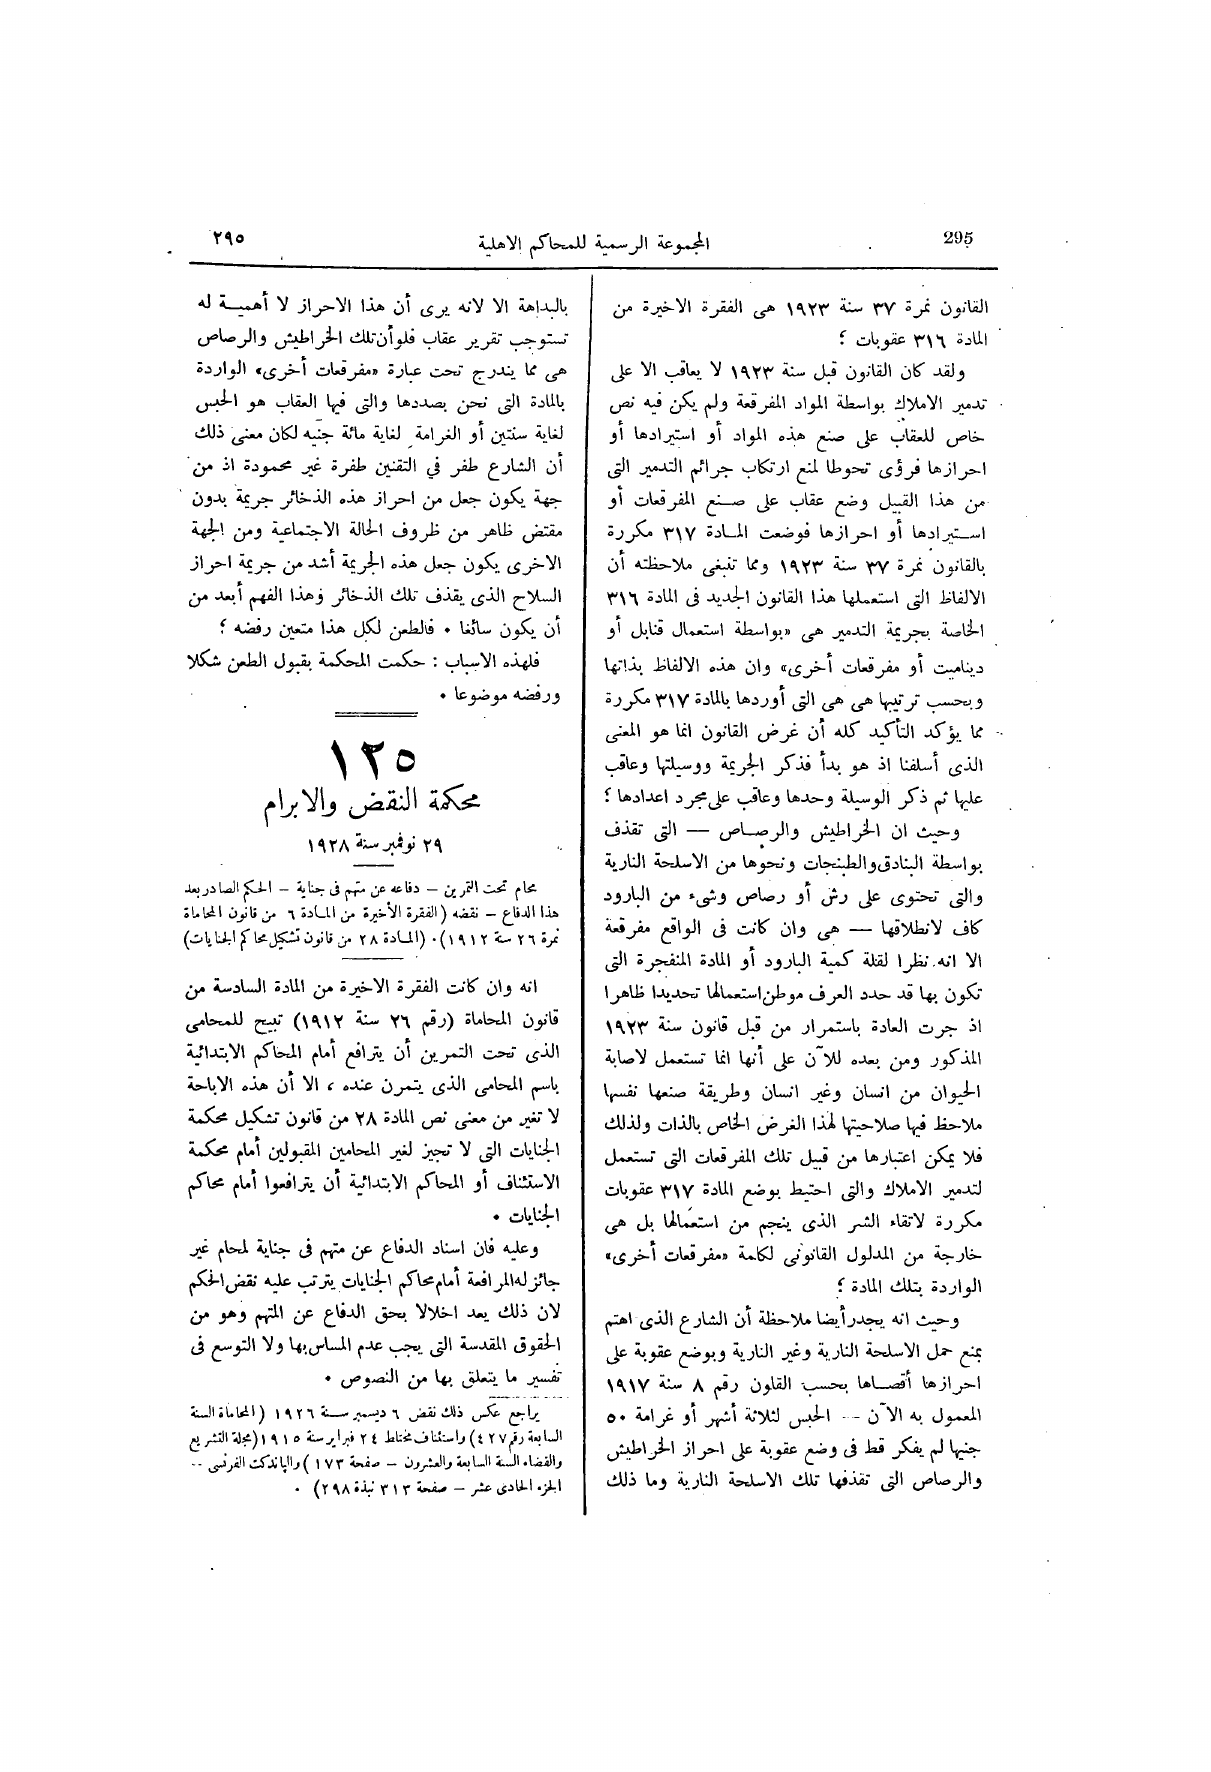 295
المجموعة الرسمية للمحاكم الاهلية
٢٩٥
القانون نمرة ٣٧ سنة ١٩٢٣ هى الفقرة الاخيرة من
المادة ٣١٦ عقوبات ؟
ولقد كان القانون قبل سنة ١٩٢٣ لا يعاقب الا على
تدمير الاملاك بواسطة المواد المفرقعة ولم يكن فيه نص
خاص للعقاب على صنع هذه المواد أو استيرادها أو
احرازها فرؤى تحوطا لمنع ارتكاب جرائم التدمير التى
من هذا القبيل وضع عقاب على صنع المفرقعات أو
استيرادها أو احرازها فوضعت المادة ٣١٧ مكررة
بالقانون نمرة ٣٧ سنة ١٩٢٣ ومما تنبغى ملاحظته أن
الالفاظ التى استعملها هذا القانون الجديد فى المادة ٣١٦
الخاصة بجريمة التدمير هى «بواسطة استعمال قنابل أو
ديناميت أو مفرقعات أخرى» وان هذه الالفاظ بذاتها
وبحسب ترتيبها هى هى التى أوردها بالمادة ٣١٧ مكررة
مما يؤكد التأكيد كله أن غرض القانون انما هو المعنى
الذى أسلفنا اذ هو بدأ فذكر الجريمة ووسيلتها وعاقب
عليها ثم ذكر الوسيلة وحدها وعاقب على مجرد اعدادها ؟
وحيث ان الخراطيش والرصاص — التى تقذف
بواسطة البنادق والطبنجات ونحوها من الاسلحة النارية
والتى تحتوى على رش أو رصاص وشىء من البارود
كاف لانطلاقها — هى وان كانت فى الواقع مفرقعة
الا انه نظرا لقلة كمية البارود أو المادة المنفجرة التى
تكون بها قد حدد العرف موطن استعمالها تحديدا ظاهرا
اذ جرت العادة باستمرار من قبل قانون سنة ١٩٢٣
المذكور ومن بعده للآن على أنها انما تستعمل لاصابة
الحيوان من انسان وغير انسان وطريقة صنعها نفسها
ملاحظ فيها صلاحيتها لهذا الغرض الخاص بالذات ولذلك
فلا يمكن اعتبارها من قبيل تلك المفرقعات التى تستعمل
لتدمير الاملاك والتى احتيط بوضع المادة ٣١٧ عقوبات
مكررة لاتقاء الشر الذى ينجم من استعمالها بل هى
خارجة من المدلول القانونى لكلمة «مفرقعات أخرى»
الواردة بتلك المادة ؟
وحيث انه يجدر أيضا ملاحظة أن الشارع الذى اهتم
بمنع حمل الاسلحة النارية وغير النارية وبوضع عقوبة على
احرازها أقصاها بحسب القلون رقم ٨ سنة ١٩١٧
المعمول به الآن — الحبس لثلاثة أشهر أو غرامة ٥٠
جنيها لم يفكر قط فى وضع عقوبة على احراز الخراطيش
والرصاص التى تقذفها تلك الاسلحة النارية وما ذلك
بالبداهة الا لانه يرى أن هذا الاحراز لا أهمية له
تستوجب تقرير عقاب فلو أن تلك الخراطيش والرصاص
هى مما يندرج تحت عبارة «مفرقعات أخرى» الواردة
بالمادة التى نحن بصددها والتى فيها العقاب هو الحبس
لغاية سنتين أو الغرامة لغاية مائة جنيه لكان معنى ذلك
أن الشارع طفر في التقنين طفرة غير محمودة اذ من
جهة يكون جعل من احراز هذه الذخائر جريمة بدون
مقتض ظاهر من ظروف الحالة الاجتماعية ومن الجهة
الاخرى يكون جعل هذه الجريمة أشد من جريمة احراز
السلاح الذى يقذف تلك الذخائر وهذا الفهم أبعد من
أن يكون سائغا • فالطعن لكل هذا متعين رفضه ؟
فلهذه الاسباب : حكمت المحكمة بقبول الطعن شكلا
ورفضه موضوعا •
١٢٥
محكمة النقض والابرام
٢٩ نوفمبر سنة ١٩٢٨
محام تحت التمرين – دفاعه عن متهم فى جناية – الحكم الصادر بعد
هذا الدفاع – نقضه (الفقرة الأخيرة من المادة ٦ من قانون المحاماة
نمرة ٢٦ سنة ١٩١٢)• (المادة ٢٨ من قانون تشكيل محاكم الجنايات)
انه وان كانت الفقرة الاخيرة من المادة السادسة من
قانون المحاماة (رقم ٢٦ سنة ١٩١٢) تبيح للمحامى
الذى تحت التمرين أن يترافع أمام المحاكم الابتدائية
باسم المحامى الذى يتمرن عنده ، الا أن هذه الاباحة
لا تغير من معنى نص المادة ٢٨ من قانون تشكيل محكمة
الجنايات التى لا تجيز لغير المحامين المقبولين أمام محكمة
الاستئناف أو المحاكم الابتدائية أن يترافعوا أمام محاكم
الجنايات •
وعليه فان اسناد الدفاع عن متهم فى جناية لمحام غير
جائز له المرافعة أمام محاكم الجنايات يترتب عليه نقض الحكم
لان ذلك يعد اخلالا بحق الدفاع عن المتهم وهو من
الحقوق المقدسة التى يجب عدم المساس بها ولا التوسع فى
تفسير ما يتعلق بها من النصوص •
يراجع عكس ذلك نقض ٦ ديسمبر سنة ١٩٢٦ (المحاماة السنة
السابعة رقم ٤٢٧) واستئناف مختلط ٢٤ فبراير سنة ١٩١٥ (مجلة التشريع
والقضاء السنة السابعة والعشرون – صفحة ١٧٣) والپاندكت الفرنسى –
الجزء الحادى عشر – صفحة ٣١٣ نبذة ٢٩٨) •